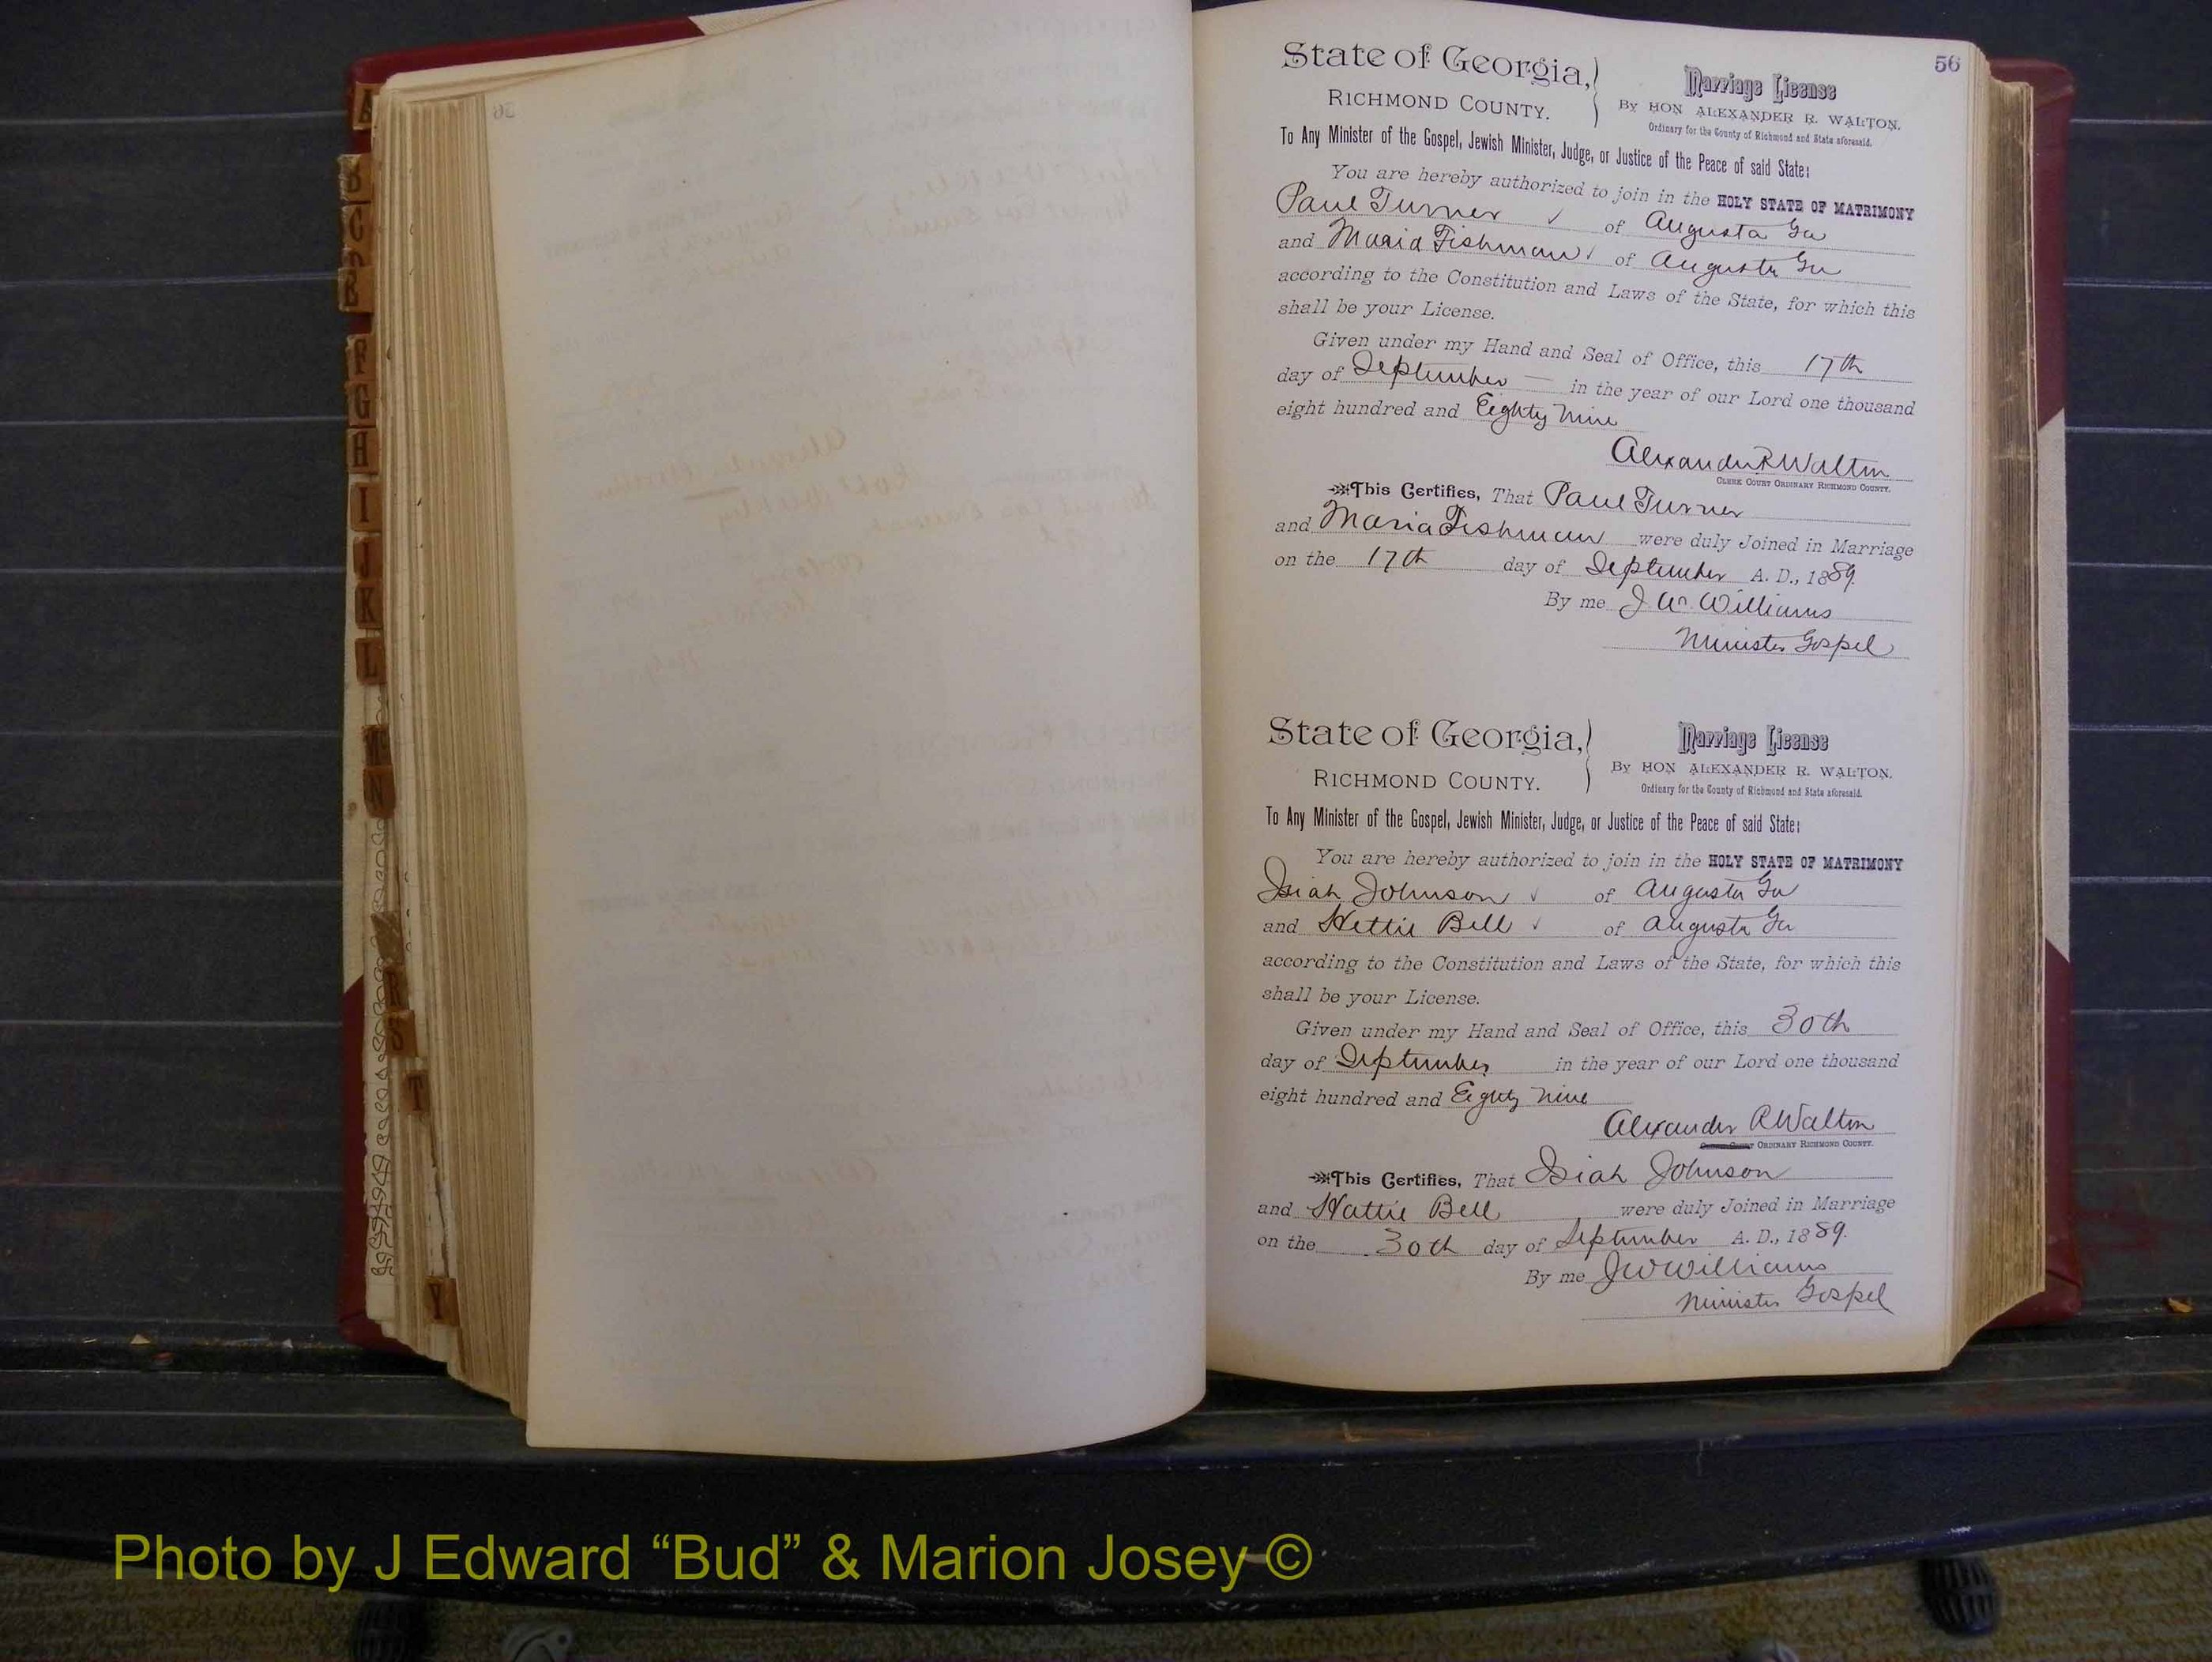 A
B
C
D
E
F
G
H
I
J
K
L
M
N
R
S
T
Y
56
State of Georgia,
RICHMOND COUNTY.
Marriage License
By HON ALEXANDER R. WALTON,
Ordinary for the County of Richmond and State aforesaid.
To Any Minister of the Gospel, Jewish Minister, Judge, or Justice of the Peace of said State:
You are hereby authorized to join in the HOLY STATE OF MATRIMONY
Paul Turner of Augusta Ga
and Maria Fishman of Augusta Ga
according to the Constitution and Laws of the State, for which this
shall be your License.
Given under my Hand and Seal of Office, this 17th
day of September in the year of our Lord one thousand
eight hundred and Eighty Nine
Alexander R Walton
CLERK COURT ORDINARY RICHMOND COUNTY.
This Certifies, That Paul Turner
and Maria Fishman were duly Joined in Marriage
on the 17th day of September A. D., 1889.
By me J. W. Williams
Minister Gospel
State of Georgia,
RICHMOND COUNTY.
Marriage License
By HON ALEXANDER R. WALTON,
Ordinary for the County of Richmond and State aforesaid.
To Any Minister of the Gospel, Jewish Minister, Judge, or Justice of the Peace of said State:
You are hereby authorized to join in the HOLY STATE OF MATRIMONY
Isiah Johnson of Augusta Ga
and Hettie Bell of Augusta Ga
according to the Constitution and Laws of the State, for which this
shall be your License.
Given under my Hand and Seal of Office, this 30th
day of September in the year of our Lord one thousand
eight hundred and Eighty Nine
Alexander R Walton
ORDINARY RICHMOND COUNTY.
This Certifies, That Isiah Johnson
and Hattie Bell were duly Joined in Marriage
on the 30th day of September A. D., 1889.
By me J W Williams
Minister Gospel
Photo by J Edward “Bud” & Marion Josey ©